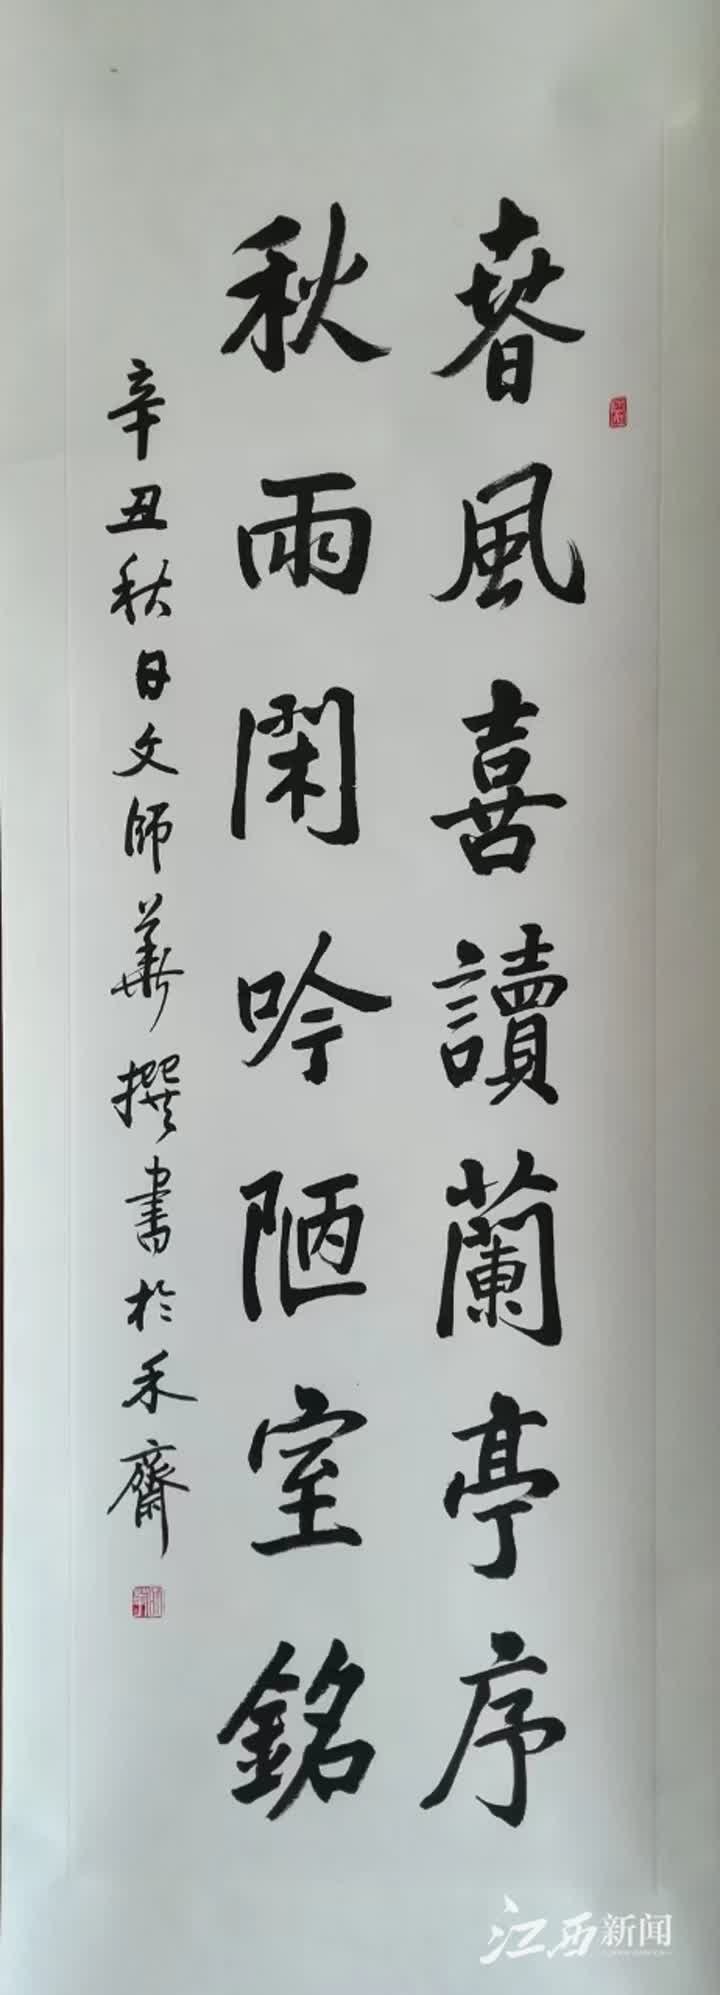 春風喜讀蘭亭序
秋雨閑吟陋室銘
辛丑秋日文師華撰書於禾齋
江西新闻